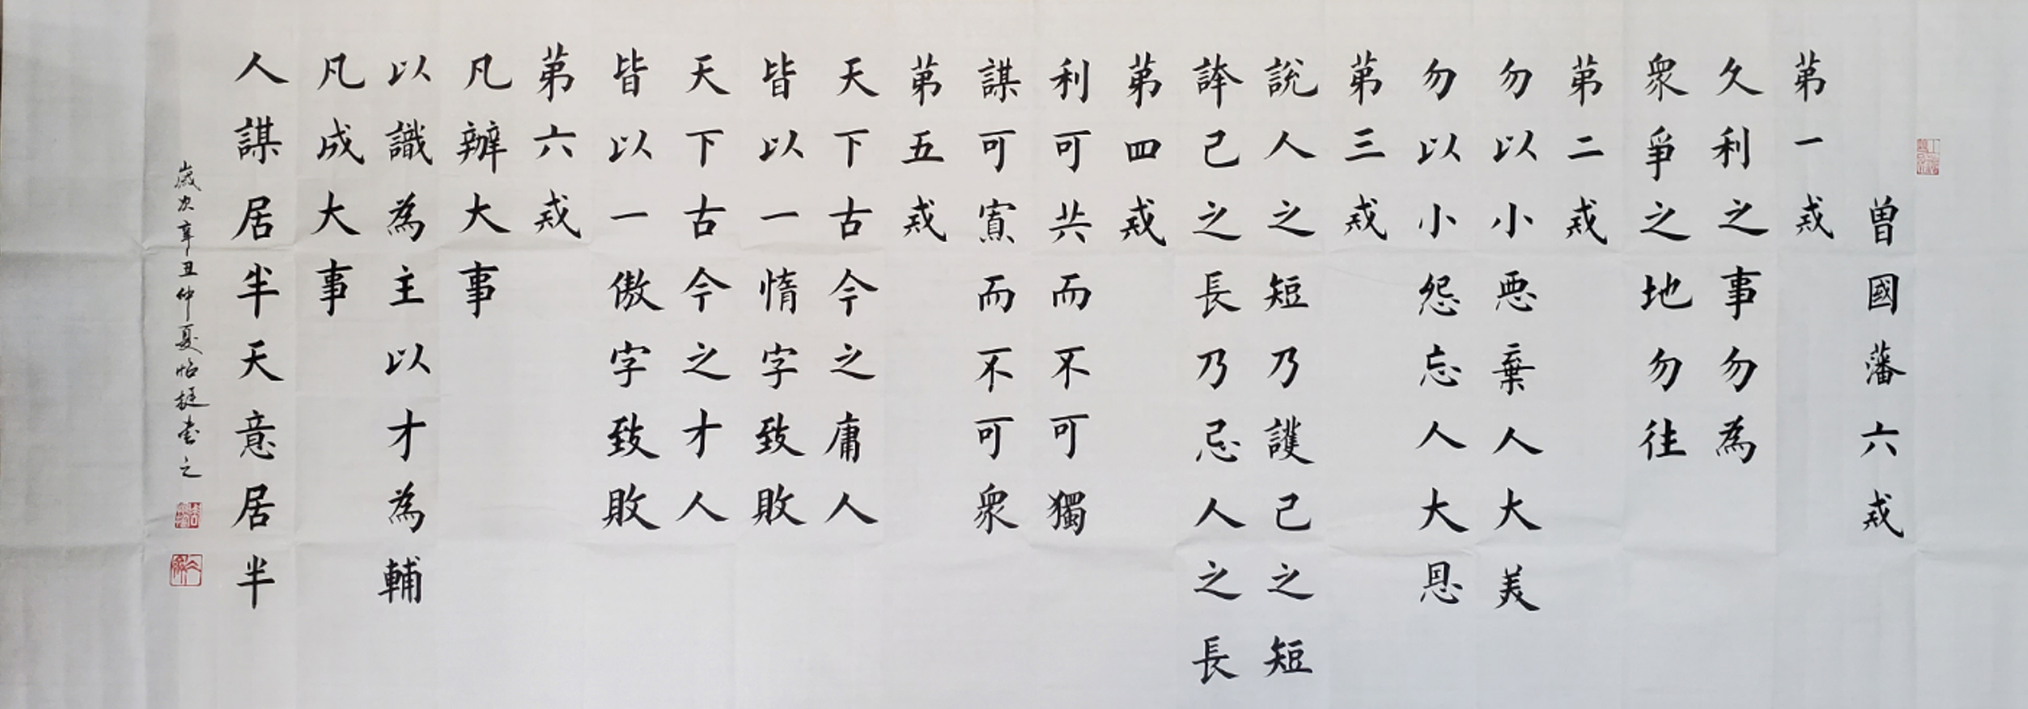 曾國藩六戒
第一戒
久利之事勿為
衆爭之地勿往
第二戒
勿以小惡棄人大美
勿以小怨忘人大恩
第三戒
說人之短乃護己之短
誇己之長乃忌人之長
第四戒
利可共而不可獨
謀可寡而不可衆
第五戒
天下古今之庸人
皆以一惰字致敗
天下古今之才人
皆以一傲字致敗
第六戒
凡辦大事
以識為主以才為輔
凡成大事
人謀居半天意居半
歲次辛丑仲夏怡挺書之